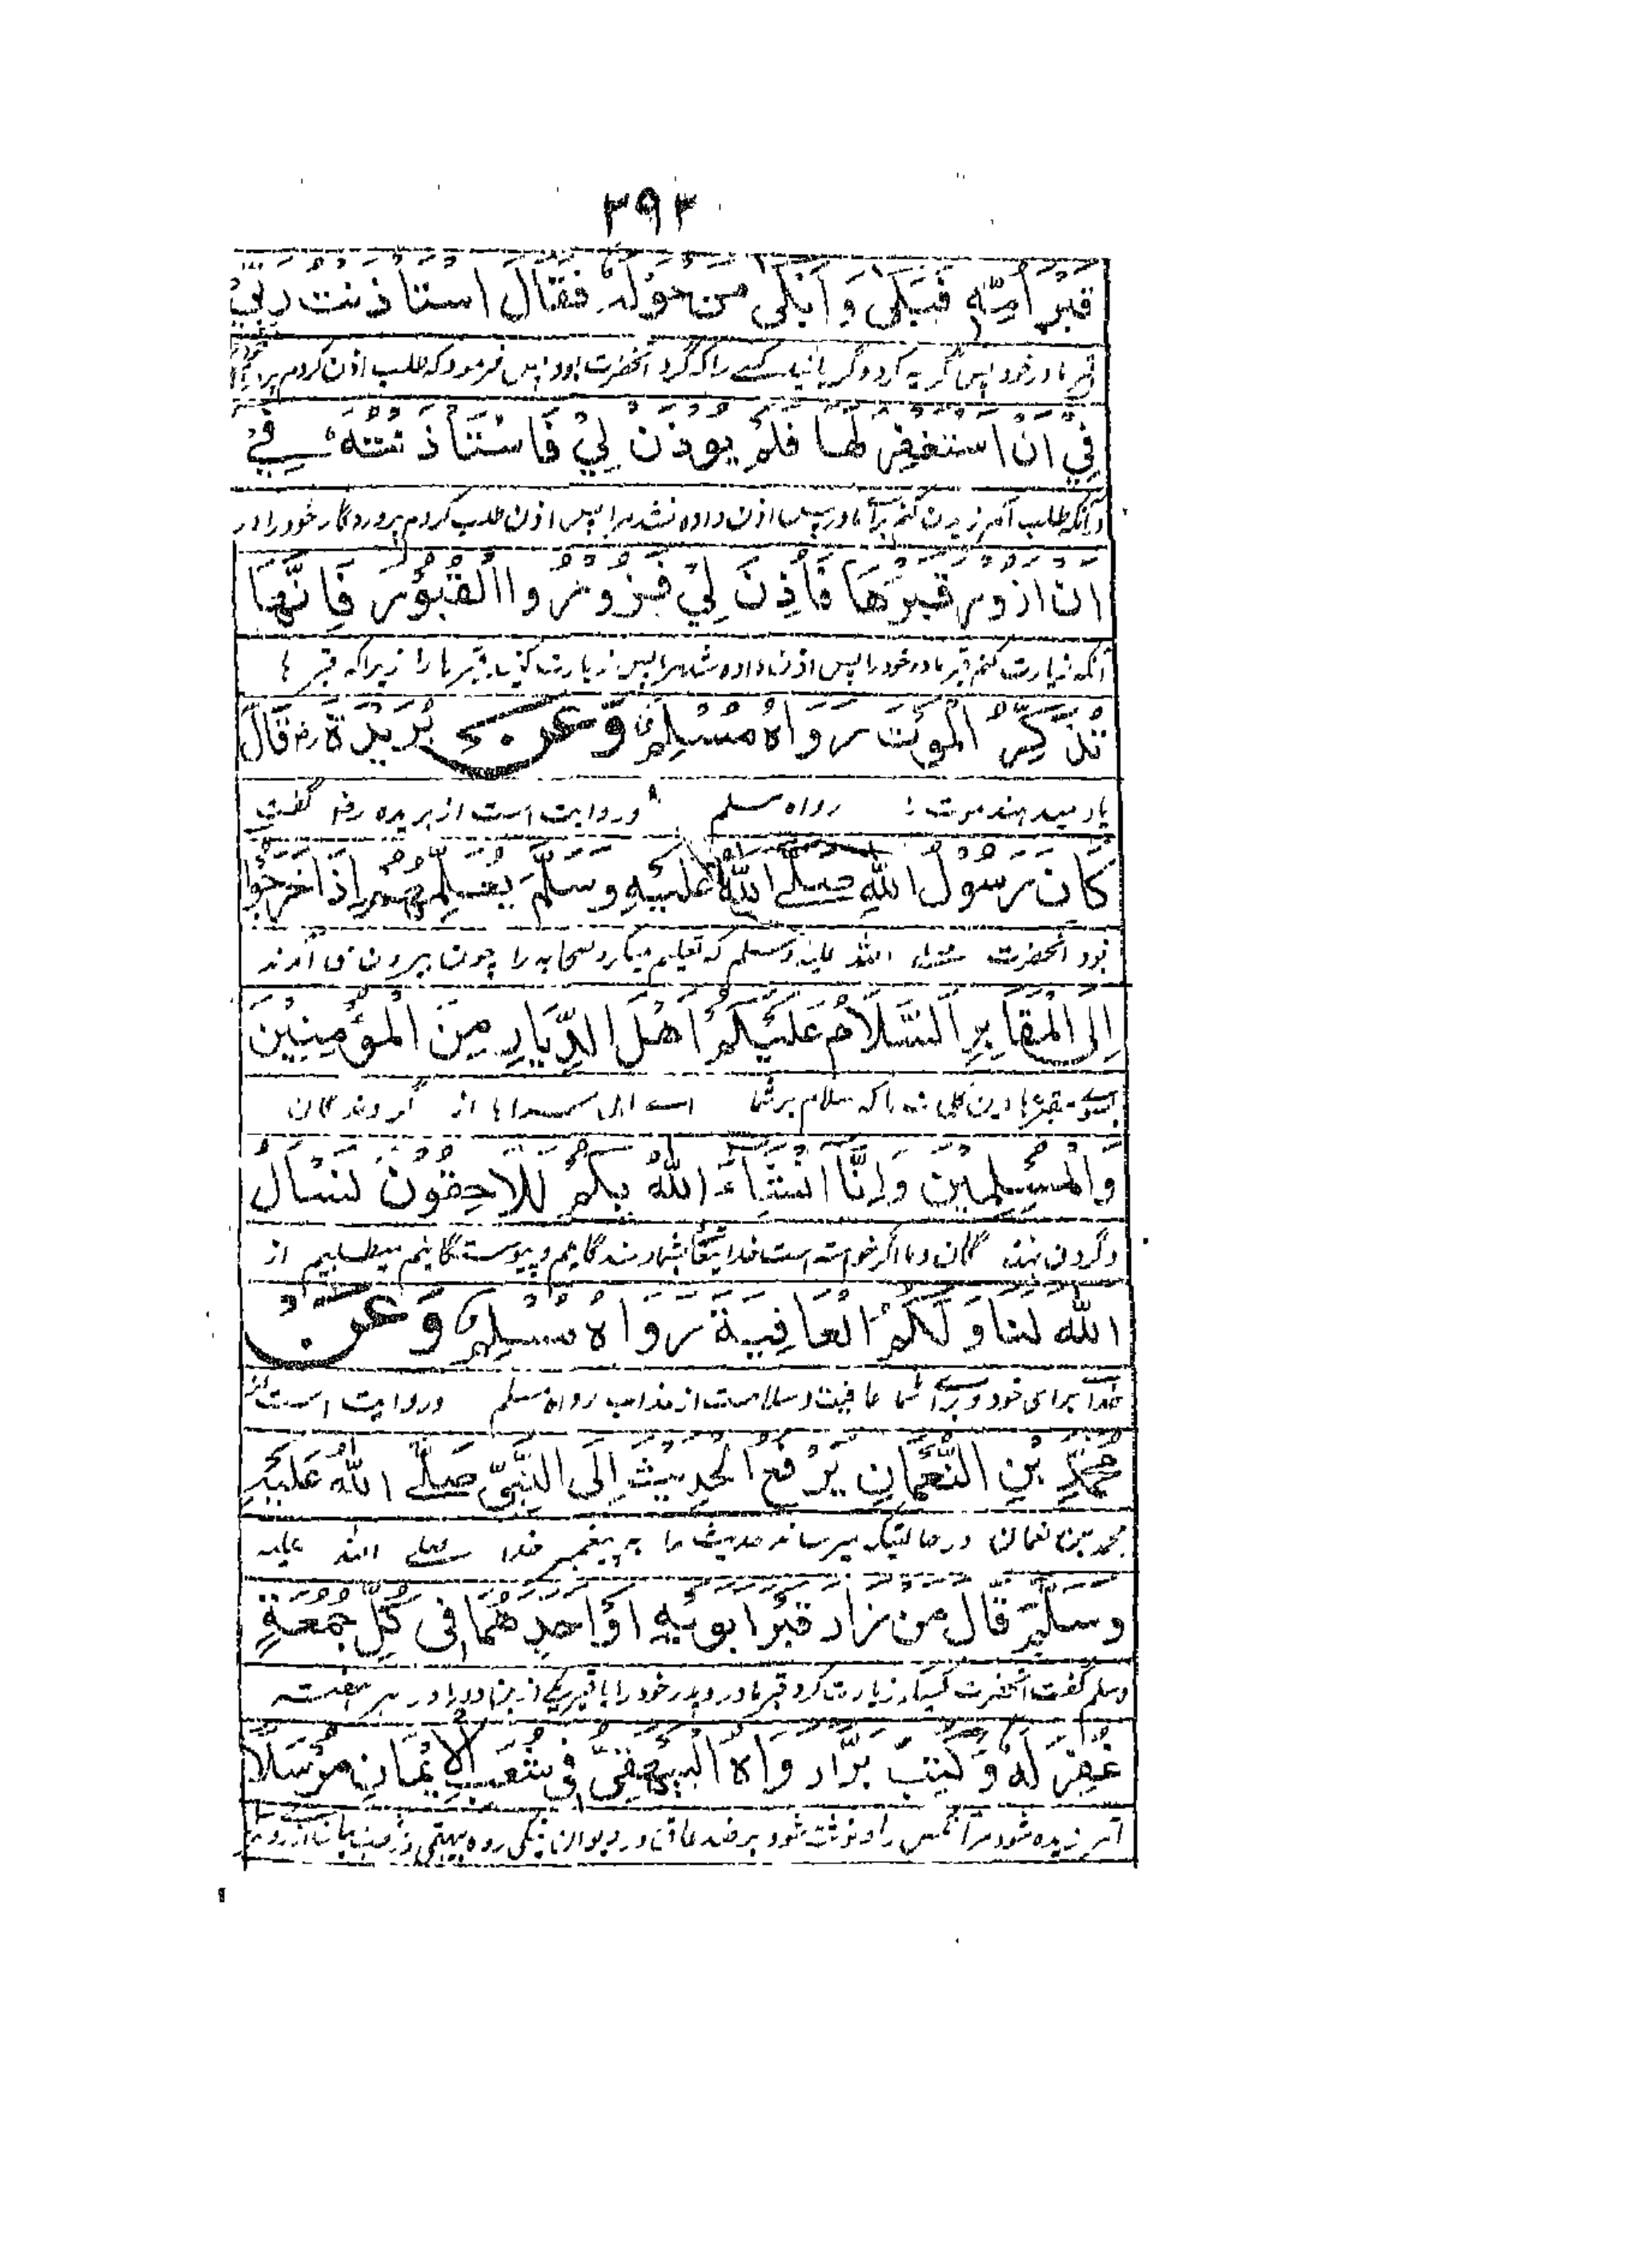 ۳۹۳
قَبْرَ اُمِّهٖ فَبَكٰى وَاَبْكٰى مَنْ حَوْلَهٗ فَقَالَ اسْتَأْذَنْتُ رَبِّيْ
قبر مادر خود پس گریه کرد و گریانید کسے را که گرد آنحضرت بود پس فرمود که طلب اذن کردم
فِيْ اَنْ اَسْتَغْفِرَ لَهَا فَلَمْ يُؤْذَنْ لِيْ فَاسْتَأْذَنْتُهٗ فِيْ
در آنکه طلب آمرزیدن کنم برائے مادر پس اذن داده نشد مرا پس اذن طلب کردم پروردگار خود را در
اَنْ اَزُوْرَ قَبْرَهَا فَاُذِنَ لِيْ فَزُوْرُوا الْقُبُوْرَ فَاِنَّهَا
آنکه زیارت کنم قبر مادر خود را پس اذن داده شد مرا پس زیارت کنید قبرها را زیرا که قبر ها
تُذَكِّرُ الْمَوْتَ رَوَاهُ مُسْلِمٌ وَّعَنْ بُرَيْدَةَ رض قَالَ
یاد میدهند موت را رواه مسلم و روایت است از بریده رض گفت
كَانَ رَسُوْلُ اللهِ صَلَّے اللهُ عَلَيْهِ وَسَلَّمَ يُعَلِّمُهُمْ اِذَا خَرَجُوْا
بود آنحضرت صلے الله علیه وسلم که تعلیم میکرد صحابه را چون بیرون می آمدند
اِلَى الْمَقَابِرِ اَلسَّلَامُ عَلَيْكُمْ اَهْلَ الدِّيَارِ مِنَ الْمُؤْمِنِيْنَ
بسوے مقبرها این کلمات را که سلام بر شما اے اهل سراها از گروندگان
وَالْمُسْلِمِيْنَ وَاِنَّا اِنْشَاءَ اللهُ بِكُمْ لَلَاحِقُوْنَ نَسْأَلُ
و گردن نهندگان و ما اگر خواسته است خدا تعالی بشما رسندگانیم و پیوستگانیم میطلبیم از
اللهَ لَنَا وَلَكُمُ الْعَافِيَةَ رَوَاهُ مُسْلِمٌ وَعَنْ
خدا برای خود و برائے شما عافیت و سلامت از عذاب رواه مسلم و روایت است از
مُحَمَّدِ بْنِ النُّعْمَانِ يَرْفَعُ الْحَدِيْثَ اِلَى النَّبِيِّ صَلَّے اللهُ عَلَيْهِ
محمد بن نعمان در حالتیکه میرساند حدیث را به پیغمبر خدا صلے الله علیه
وَسَلَّمَ قَالَ مَنْ زَارَ قَبْرَ اَبَوَيْهِ اَوْ اَحَدِهِمَا فِى كُلِّ جُمُعَةٍ
وسلم گفت آنحضرت کسیکه زیارت کرد قبر مادر و پدر خود را یا قبر یکے از این دو را در هر هفته
غُفِرَ لَهٗ وَكُتِبَ بَرًّا رَوَاهُ الْبَيْهَقِيُّ فِى شُعَبِ الْاِيْمَانِ مُرْسَلًا
آمرزیده شود مر آنکس را و نوشته شود در دیوان نیکی رواه بیهقی